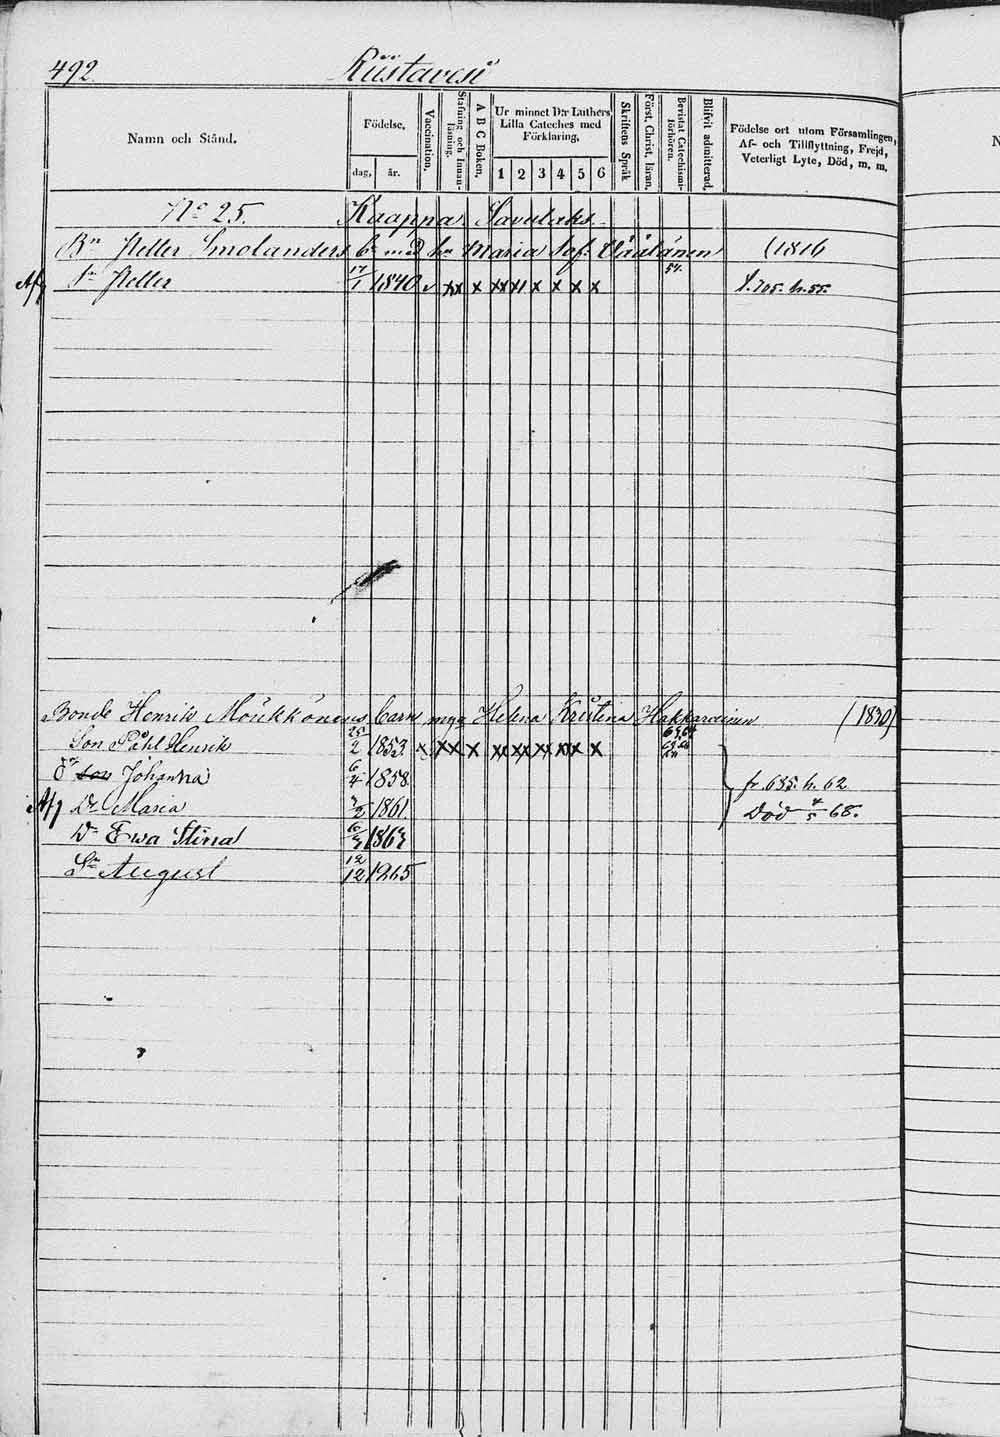 492. Riistavesi
Namn och Stånd.
Födelse, dag, år.
Vaccination.
Stafning och Innanläsning.
A B C Boken.
Ur minnet D:r Luthers Lilla Cateches med Förklaring,
1 2 3 4 5 6
Skriftens Språk
Först. Christ. läran.
Bevistat Catechismiförhören.
Blifvit admitterad.
Födelse ort utom Församlingen, Af- och Tillflyttning, Frejd, Veterligt Lyte, Död, m. m.
No 25. Kaappa Savulaks
Bn Petter Smolanders bn med hu Maria Sof: Väätänen (1816
Afg Sn Petter 17/1 1840 v xx x xx x x x x x 54. f. 705. h. 55.
Bonde Henrik Moukkonens barn myg Helena Kristina Hakkarainen (1830)
Son Påhl Henrik 25/2 1853 x xx x xx xx xx xx x x
Dr son Johanna 6/4 1858. fr. 685. h. 62
Afg Dr Maria 1861. Död 4/5 68.
Dr Ewa Stina 1863
Sn August 12/12 1865